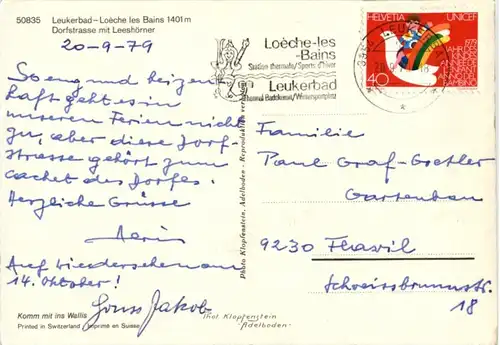 50835 Leukerbad–Loèche les Bains 1401 m
Dorfstrasse mit Leeshörner
20-9-79
So eng und heigen-
haft geht es in
unseren Ferien nicht
zu, aber diese Dorf-
strasse gehört zum
cachet des Dorfes.
Herzliche Grüsse
Auf Wiedersehen am
14. Oktober!
Jakob
Komm mit ins Wallis
Printed in Switzerland Imprimé en Suisse
Photo Klopfenstein, Adelboden - Reproduktion verboten
Phot Klopfenstein
Adelboden
Loèche-les
-Bains
Station thermale/Sports d'hiver
Leukerbad
Thermal Badekurort/Wintersportplatz
HELVETIA UNICEF
40
1979
JAHR DES KINDES
Familie
Paul Graf-
Gartenbau
9230 Flawil
18